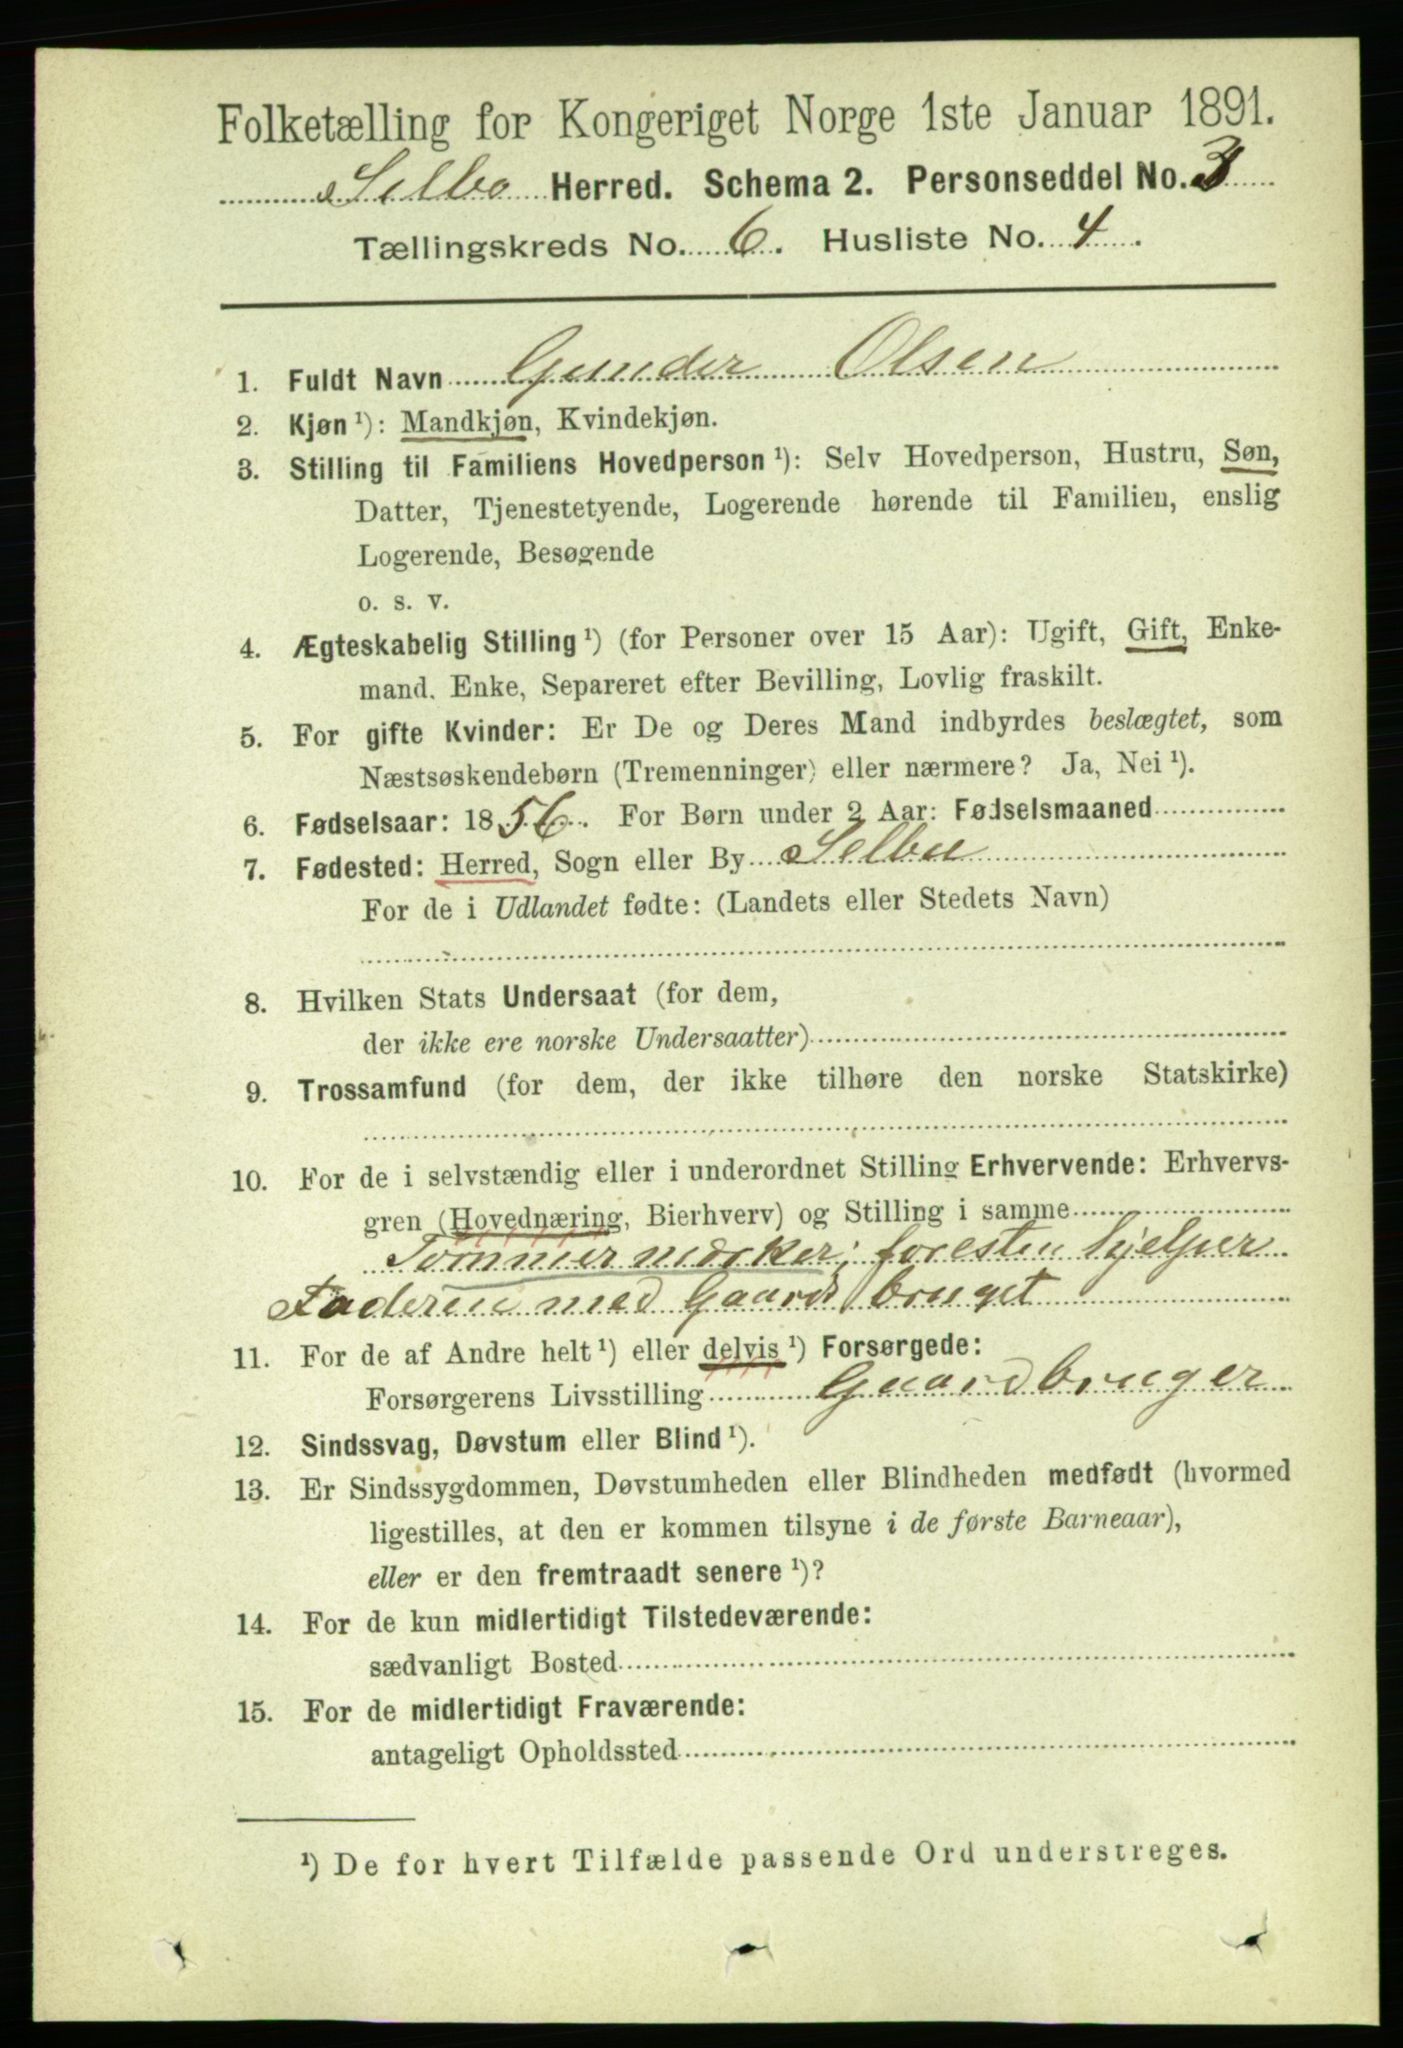 Folketælling for Kongeriget Norge 1ste Januar 1891.
Selbo Herred. Schema 2. Personseddel No. 3
Tællingskreds No. 6. Husliste No. 4.
1. Fuldt Navn Gunder Olsen
2. Kjøn ¹): Mandkjøn, Kvindekjøn.
3. Stilling til Familiens Hovedperson ¹): Selv Hovedperson, Hustru, Søn,
Datter, Tjenestetyende, Logerende hørende til Familien, enslig
Logerende, Besøgende
o. s. v.
4. Ægteskabelig Stilling ¹) (for Personer over 15 Aar): Ugift, Gift, Enke-
mand, Enke, Separeret efter Bevilling, Lovlig fraskilt.
5. For gifte Kvinder: Er De og Deres Mand indbyrdes beslægtet, som
Næstsøskendebørn (Tremenninger) eller nærmere? Ja, Nei ¹).
6. Fødselsaar: 1856. For Børn under 2 Aar: Fødselsmaaned
7. Fødested: Herred, Sogn eller By Selbu
For de i Udlandet fødte: (Landets eller Stedets Navn)
8. Hvilken Stats Undersaat (for dem,
der ikke ere norske Undersaatter)
9. Trossamfund (for dem, der ikke tilhøre den norske Statskirke)
10. For de i selvstændig eller i underordnet Stilling Erhvervende: Erhvervs-
gren (Hovednæring, Bierhverv) og Stilling i samme
Tømmermærker; foresten hjelper
Faderen med Gaardsbruget
11. For de af Andre helt ¹) eller delvis ¹) Forsørgede:
Forsørgerens Livsstilling Gaardbruger
12. Sindssvag, Døvstum eller Blind ¹).
13. Er Sindssygdommen, Døvstumheden eller Blindheden medfødt (hvormed
ligestilles, at den er kommen tilsyne i de første Barneaar),
eller er den fremtraadt senere ¹)?
14. For de kun midlertidigt Tilstedeværende:
sædvanligt Bosted
15. For de midlertidigt Fraværende:
antageligt Opholdssted
¹) De for hvert Tilfælde passende Ord understreges.